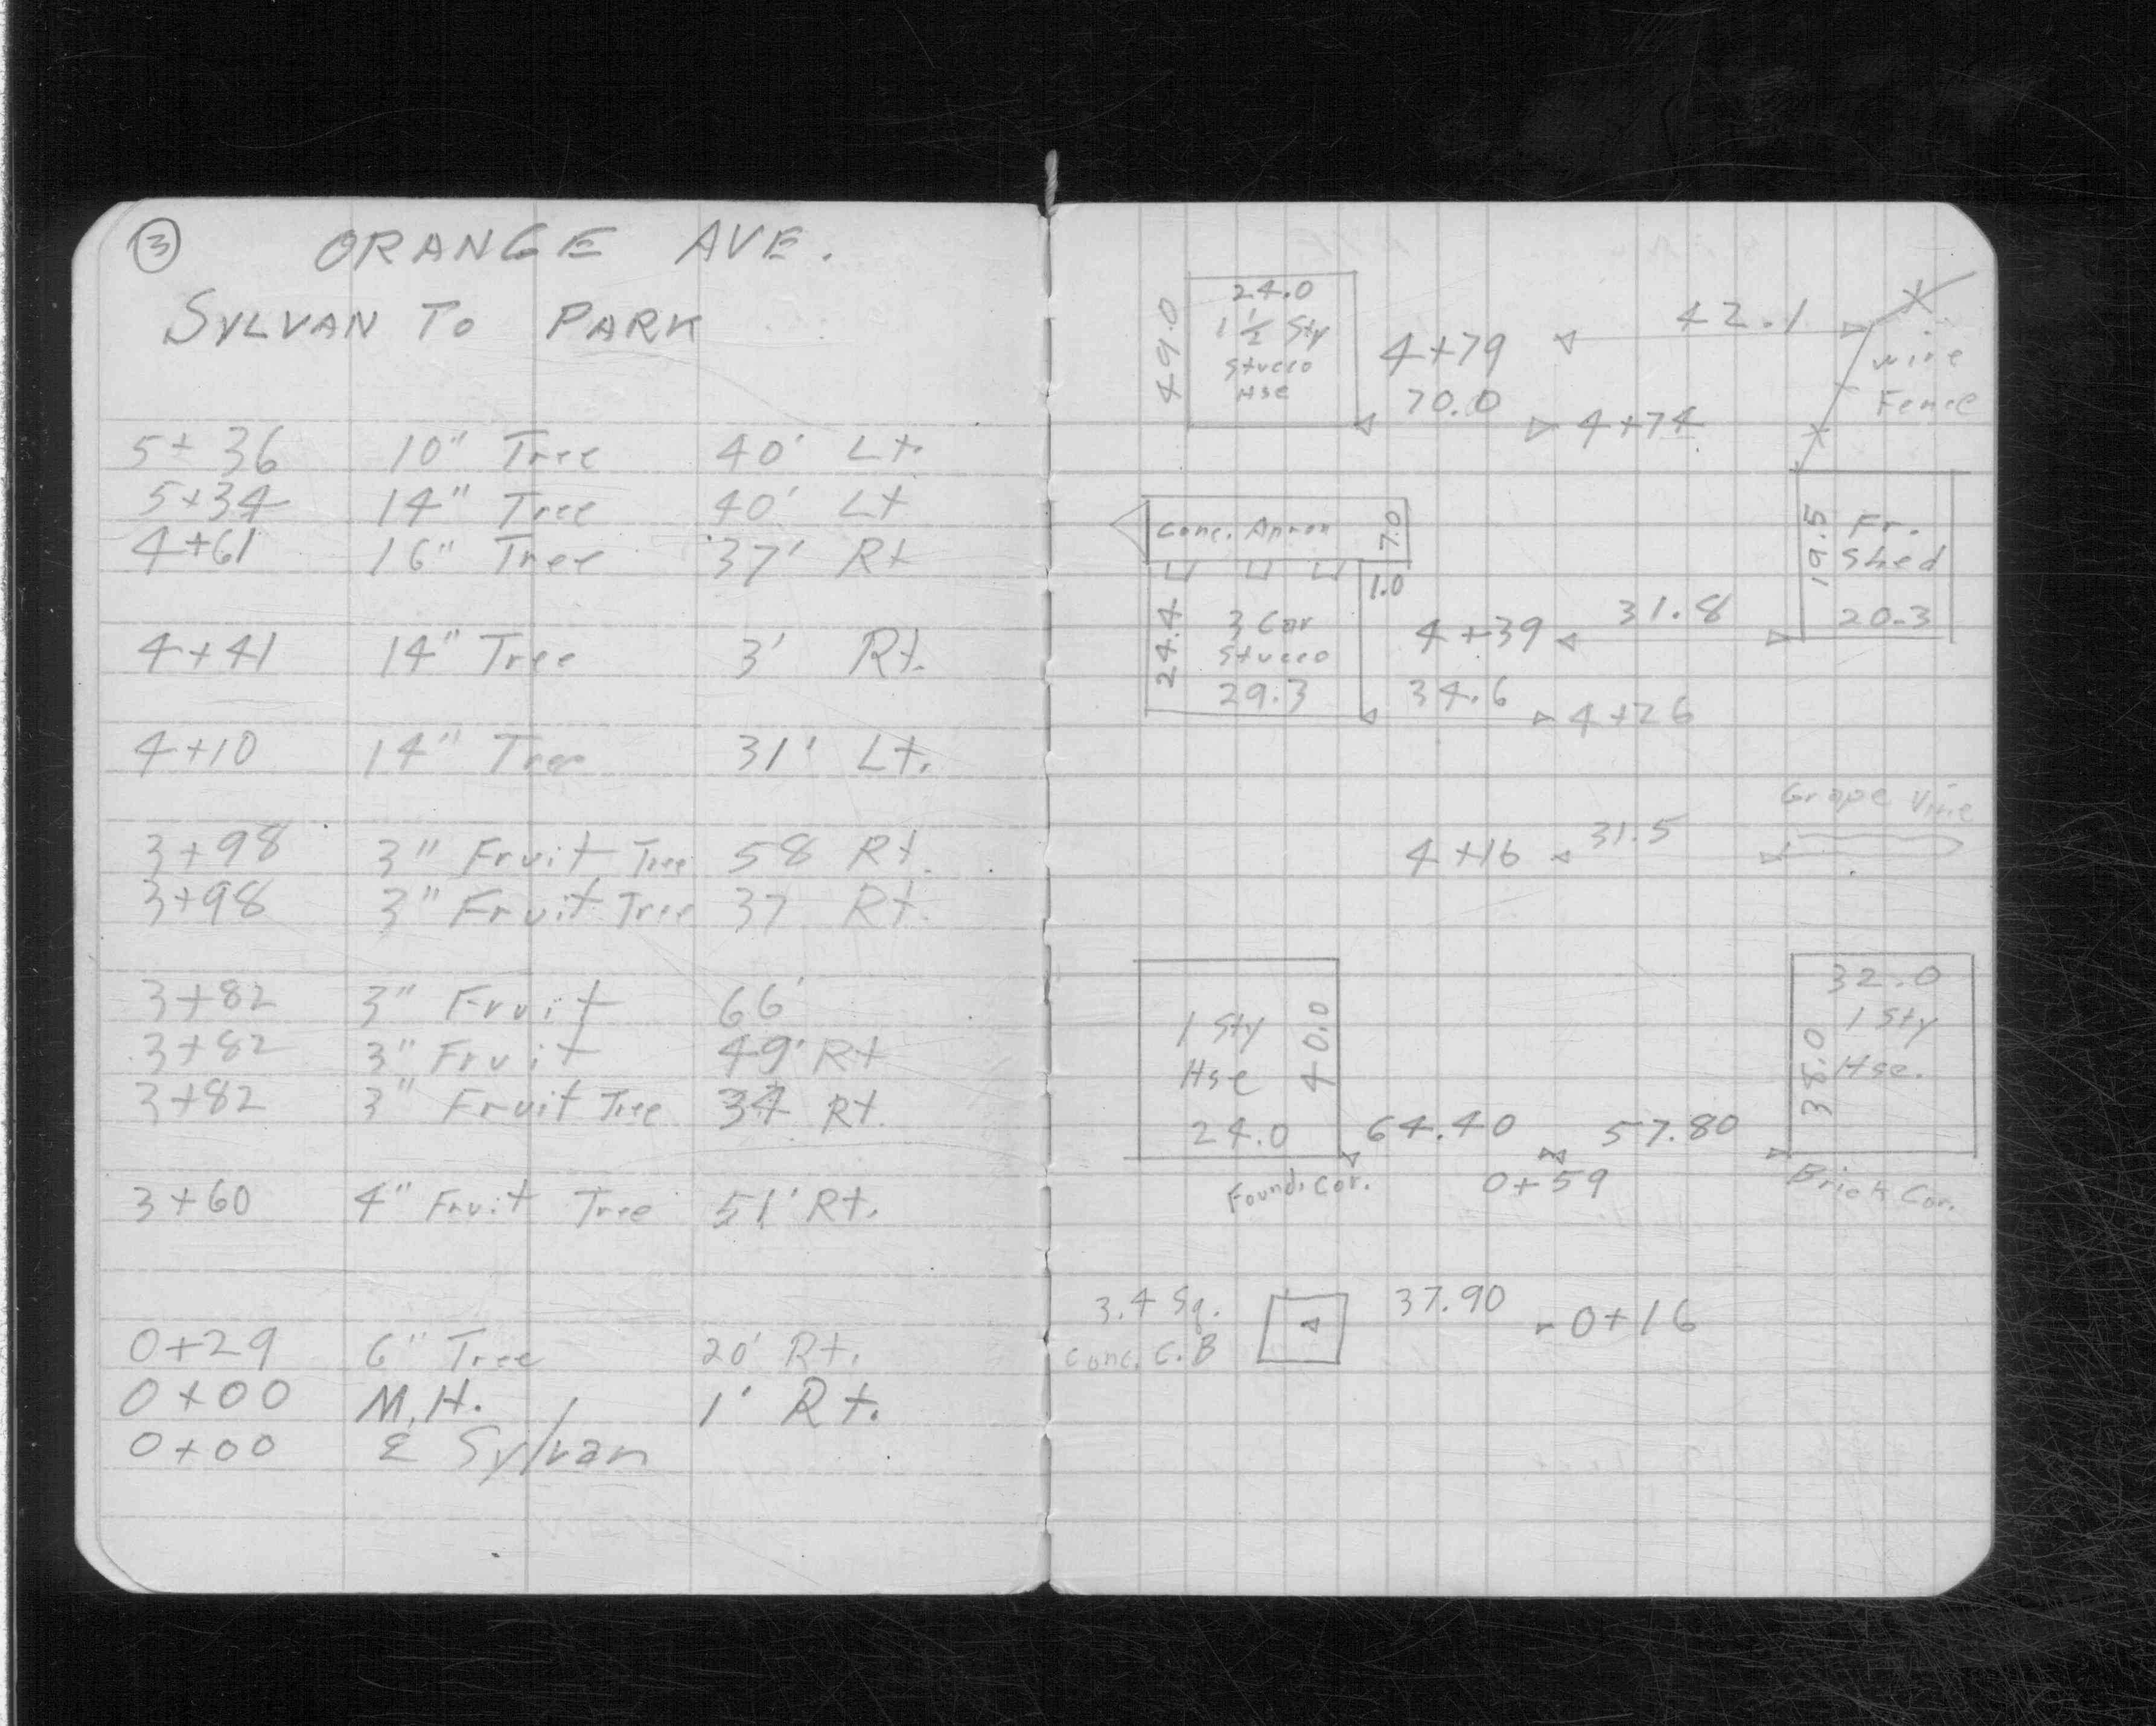 3 ORANGE AVE.
SYLVAN TO PARK
5+36 10" Tree 40' Lt.
5+34 14" Tree 40' Lt
4+61 16" Tree 37' Rt
4+41 14" Tree 3' Rt.
4+10 14" Tree 31' Lt.
3+98 3" Fruit Tree 58 Rt.
3+98 3" Fruit Tree 37 Rt.
3+82 3" Fruit 66'
3+82 3" Fruit 49' Rt
3+82 3" Fruit Tree 34 Rt.
3+60 4" Fruit Tree 51' Rt.
0+29 6" Tree 20' Rt.
0+00 M.H. 1' Rt.
0+00 ℄ Sylvan
49.0
24.0
1 1/2 Sty
Stucco
Hse
4+79
42.1
70.0
4+74
Wire
Fence
Conc. Apron
7.0
1.0
24.4
3 Car
Stucco
29.3
4+39
31.8
34.6
4+26
19.5
Fr.
Shed
20.3
Grape Vine
4+16
31.5
1 Sty
Hse
40.0
24.0
64.40
57.80
0+59
Found. Cor.
32.0
1 Sty
Hse.
38.0
Brick Cor.
3.4 Sq.
Conc. C.B
37.90
0+16